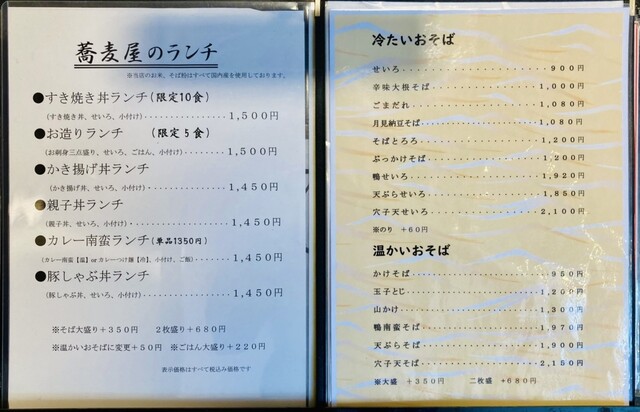 蕎麦屋のランチ
※当店のお米、そば粉はすべて国内産を使用しております。
●すき焼き丼ランチ(限定10食)
(すき焼き丼、せいろ、小付け)・・・・・・・・・・1,500円
●お造りランチ (限定5食)
(お刺身三点盛り、せいろ、ごはん、小付け)・・・・・・1,500円
●かき揚げ丼ランチ
(かき揚げ丼、せいろ、小付け)・・・・・・・・・・1,450円
●親子丼ランチ
(親子丼、せいろ、小付け)・・・・・・・・・・・・1,450円
●カレー南蛮ランチ(単品1350円)
(カレー南蛮【温】orカレーつけ麺【冷】、小付け、ご飯)・・・・・・1,450円
●豚しゃぶ丼ランチ
(豚しゃぶ丼、せいろ、小付け)・・・・・・・・・・1,450円
※そば大盛り+350円 2枚盛り+680円
※温かいおそばに変更+50円 ※ごはん大盛り+220円
表示価格はすべて税込み価格です
冷たいおそば
せいろ・・・・・・・・・・・・900円
辛味大根そば・・・・・・・・・1,000円
ごまだれ・・・・・・・・・・・1,080円
月見納豆そば・・・・・・・・・1,080円
そばとろろ・・・・・・・・・・1,200円
ぶっかけそば・・・・・・・・・1,200円
鴨せいろ・・・・・・・・・・・1,920円
天ぷらせいろ・・・・・・・・・1,850円
穴子天せいろ・・・・・・・・・2,100円
※のり +60円
温かいおそば
かけそば・・・・・・・・・・・950円
玉子とじ・・・・・・・・・・・1,200円
山かけ・・・・・・・・・・・・1,300円
鴨南蛮そば・・・・・・・・・・1,970円
天ぷらそば・・・・・・・・・・1,900円
穴子天そば・・・・・・・・・・2,150円
※大盛 +350円 二枚盛 +680円